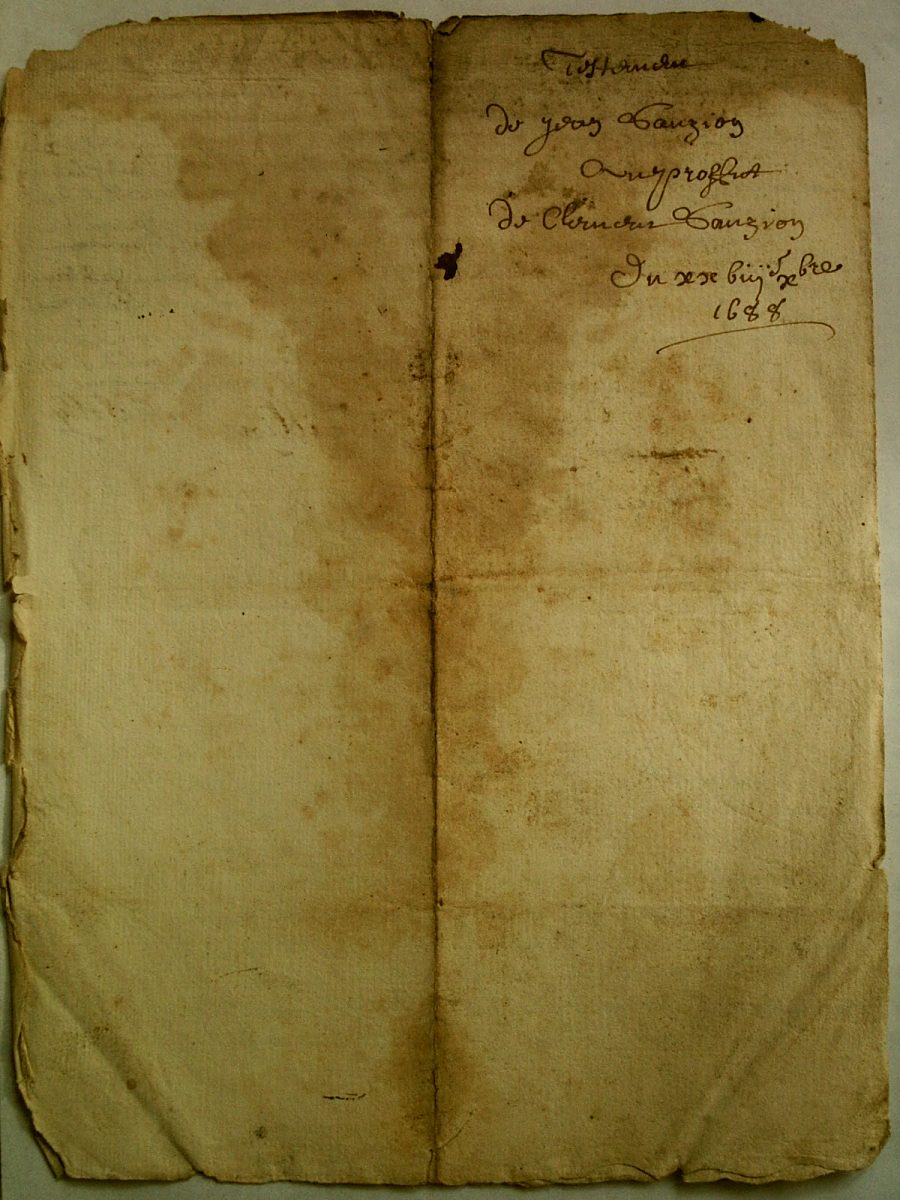 Testement
de jean Sauzion
Au proffict
de Clement Sauzion
Du xx biij xbre
1688